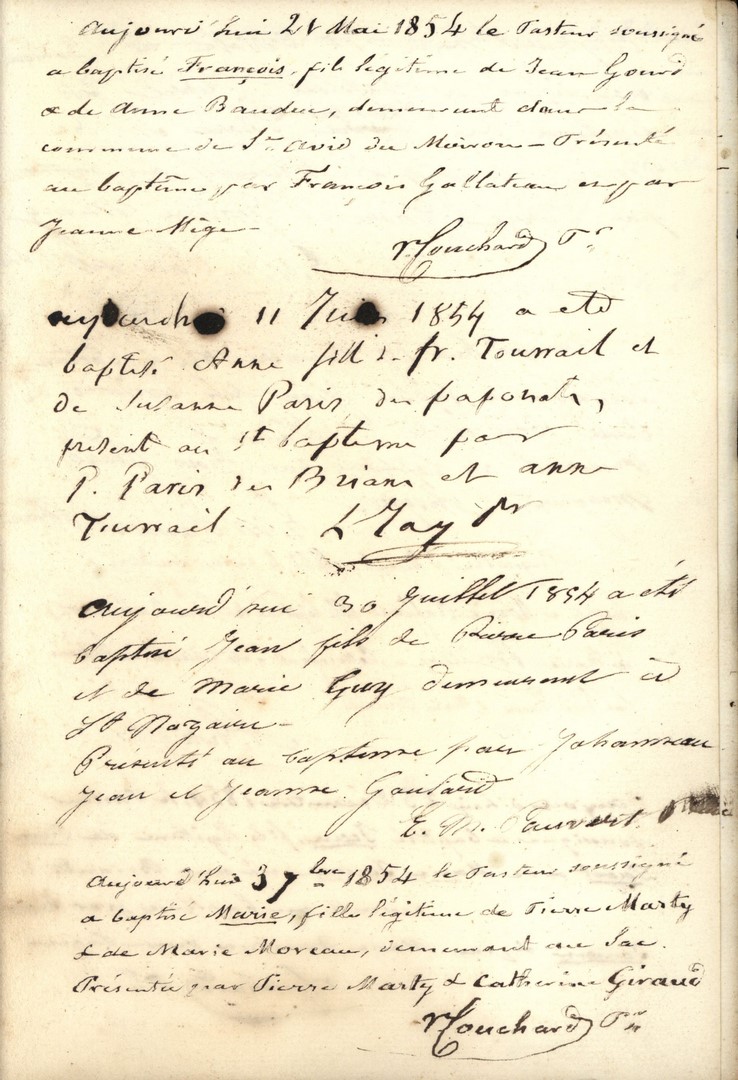 Aujourd'hui 21 Mai 1854 le Pasteur soussigné
a baptisé François, fils légitime de Jean Gourd
& de Anne Baudeu, demeurant dans la
commune de St. avid du Moiron – Présenté
au baptême par François Gallateau et par
Jeanne Mège –
Couchard Pr
aujourdhui 11 Juin 1854 a eté
baptisé Anne fill de fr. Tourrail et
de Susanne Paris des paponats,
present au st bapteme par
P. Paris des Brians et anne
Tourrail L Jay Pr
aujourd'hui 30 Juillet 1854 a été
baptisé Jean fils de Pierre Paris
et de Marie Guy demeurant à
St Nazaire –
Présenté au baptême par Johanneau
Jean et Jeanne Goulard
E. M.
Aujourd'hui 3 7bre 1854 le Pasteur soussigné
a baptisé Marie, fille légitime de Pierre Marty
& de Marie Moreau, demeurant au Sac.
Présentée par Pierre Marty & Catherine Giraud
Couchard Pr